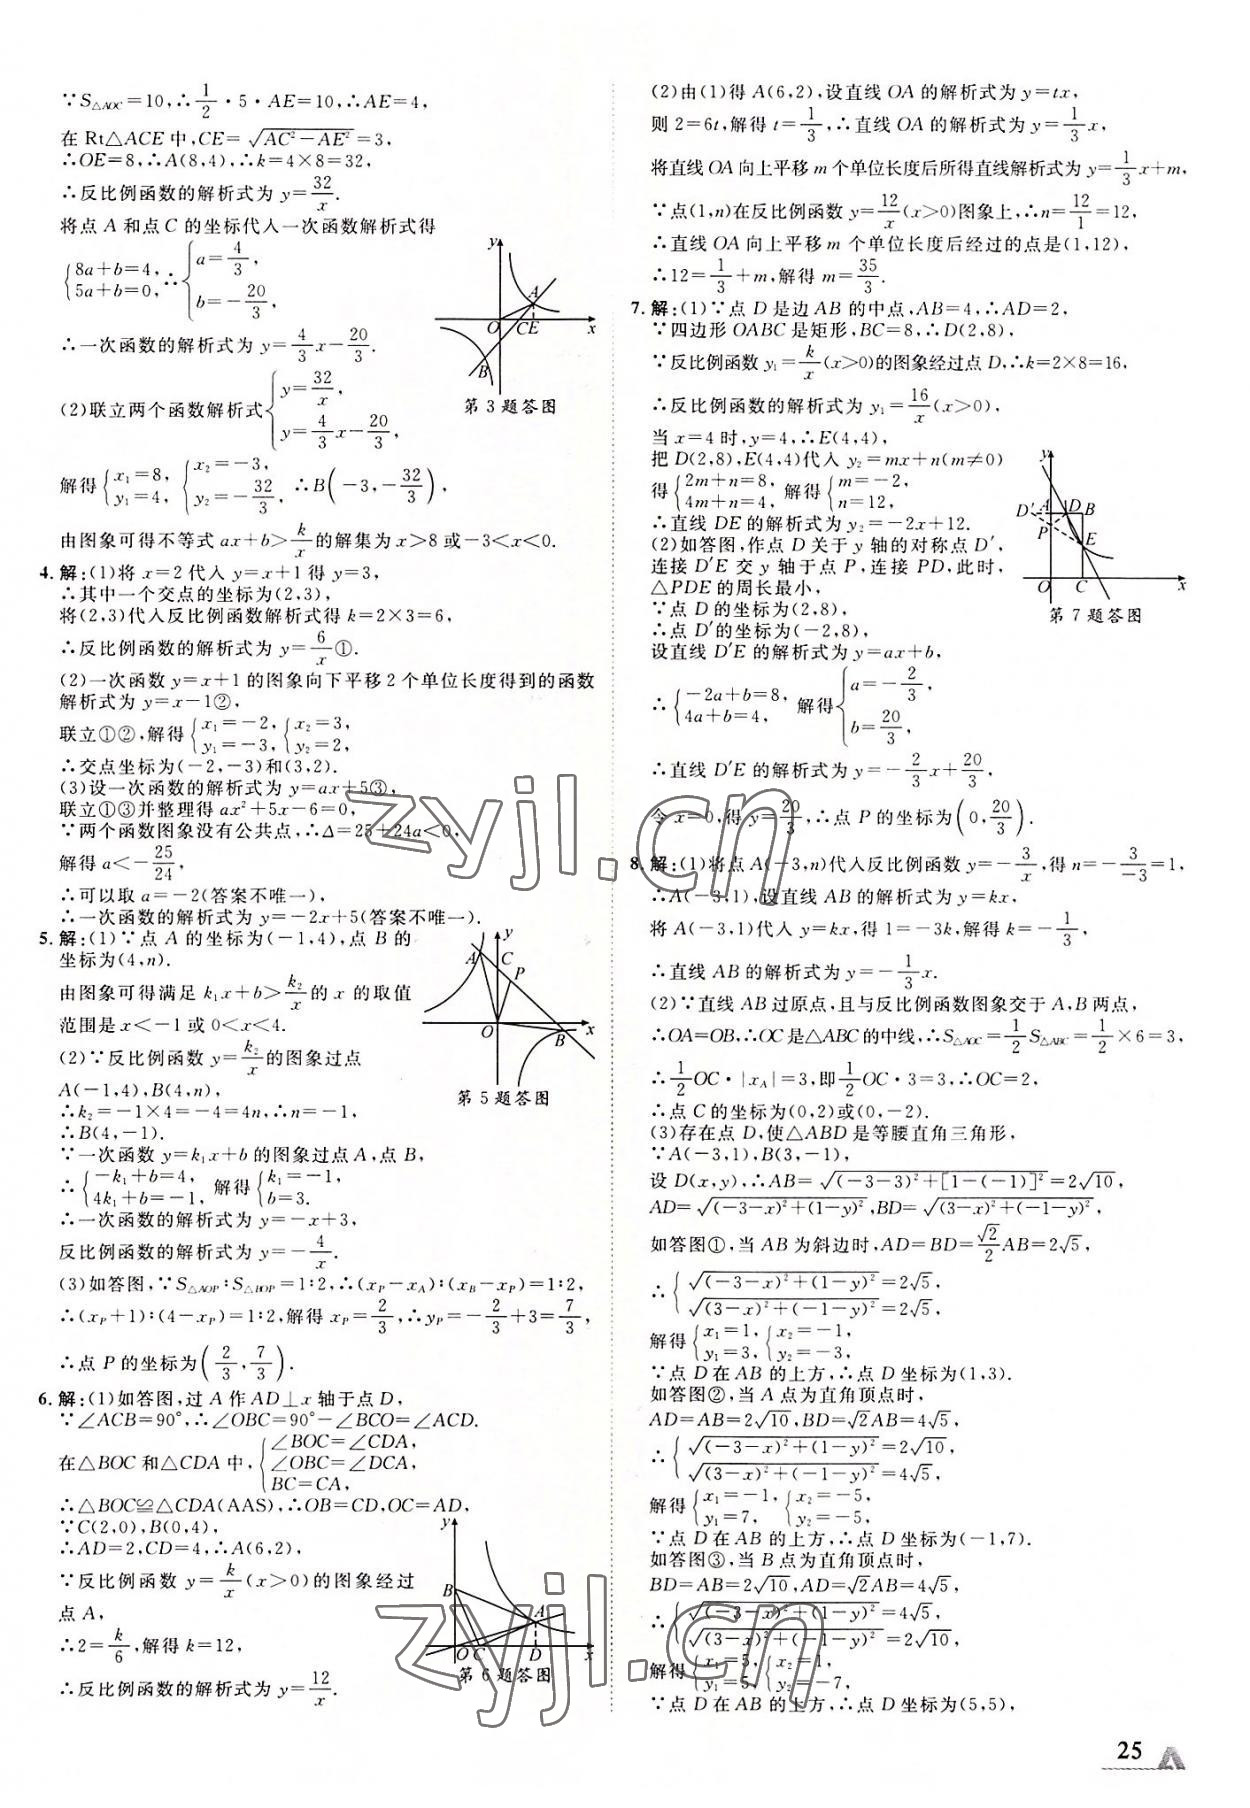 ∵S△AOC=10,∴1/2·5·AE=10,∴AE=4,
在 Rt△ACE 中,CE=√(AC²-AE²)=3,
∴OE=8,∴A(8,4),∴k=4×8=32,
∴反比例函数的解析式为 y=32/x.
将点 A 和点 C 的坐标代入一次函数解析式得
{8a+b=4, 5a+b=0, ∴{a=4/3, b=-20/3.
∴一次函数的解析式为 y=4/3x-20/3.
(2)联立两个函数解析式{y=32/x, y=4/3x-20/3,
解得{x₁=8, y₁=4, {x₂=-3, y₂=-32/3, ∴B(-3,-32/3),
由图象可得不等式 ax+b>k/x的解集为 x>8 或-3<x<0.
y
A
O
CE
x
B
第 3 题答图
4.解:(1)将 x=2 代入 y=x+1 得 y=3,
∴其中一个交点的坐标为(2,3),
将(2,3)代入反比例函数解析式得 k=2×3=6,
∴反比例函数的解析式为 y=6/x①.
(2)一次函数 y=x+1 的图象向下平移 2 个单位长度得到的函数
解析式为 y=x-1②,
联立①②,解得{x₁=-2, y₁=-3, {x₂=3, y₂=2,
∴交点坐标为(-2,-3)和(3,2).
(3)设一次函数的解析式为 y=ax+5③,
联立①③并整理得 ax²+5x-6=0,
∵两个函数图象没有公共点,∴Δ=25+24a<0,
解得 a<-25/24,
∴可以取 a=-2(答案不唯一),
∴一次函数的解析式为 y=-2x+5(答案不唯一).
5.解:(1)∵点 A 的坐标为(-1,4),点 B 的
坐标为(4,n).
由图象可得满足 k₁x+b>k₂/x的 x 的取值
范围是 x<-1 或 0<x<4.
(2)∵反比例函数 y=k₂/x的图象过点
A(-1,4),B(4,n),
∴k₂=-1×4=-4=4n,∴n=-1,
∴B(4,-1).
∵一次函数 y=k₁x+b 的图象过点 A,点 B,
∴{-k₁+b=4, 4k₁+b=-1, 解得{k₁=-1, b=3.
∴一次函数的解析式为 y=-x+3,
反比例函数的解析式为 y=-4/x.
y
A
C
P
O
B
x
第 5 题答图
(3)如答图,∵S△AOP∶S△BOP=1∶2,∴(xP-xA)∶(xB-xP)=1∶2,
∴(xP+1)∶(4-xP)=1∶2,解得 xP=2/3,∴yP=-2/3+3=7/3,
∴点 P 的坐标为(2/3,7/3).
6.解:(1)如答图,过 A 作 AD⊥x 轴于点 D,
∵∠ACB=90°,∴∠OBC=90°-∠BCO=∠ACD.
在△BOC 和△CDA 中,{∠BOC=∠CDA, ∠OBC=∠DCA, BC=CA,
∴△BOC≌△CDA(AAS),∴OB=CD,OC=AD,
∵C(2,0),B(0,4),
∴AD=2,CD=4,∴A(6,2),
∵反比例函数 y=k/x(x>0)的图象经过
点 A,
∴2=k/6,解得 k=12,
∴反比例函数的解析式为 y=12/x.
y
B
A
O
C
D
x
第 6 题答图
(2)由(1)得 A(6,2),设直线 OA 的解析式为 y=tx,
则 2=6t,解得 t=1/3,∴直线 OA 的解析式为 y=1/3x,
将直线 OA 向上平移 m 个单位长度后所得直线解析式为 y=1/3x+m,
∵点(1,n)在反比例函数 y=12/x(x>0)图象上,∴n=12/1=12,
∴直线 OA 向上平移 m 个单位长度后经过的点是(1,12),
∴12=1/3+m,解得 m=35/3.
7.解:(1)∵点 D 是边 AB 的中点,AB=4,∴AD=2,
∵四边形 OABC 是矩形,BC=8,∴D(2,8),
∵反比例函数 y₁=k/x(x>0)的图象经过点 D,∴k=2×8=16,
∴反比例函数的解析式为 y₁=16/x(x>0),
当 x=4 时,y=4,∴E(4,4),
把 D(2,8),E(4,4)代入 y₂=mx+n(m≠0)
得{2m+n=8, 4m+n=4, 解得{m=-2, n=12,
∴直线 DE 的解析式为 y₂=-2x+12.
(2)如答图,作点 D 关于 y 轴的对称点 D′,
连接 D′E 交 y 轴于点 P,连接 PD,此时,
△PDE 的周长最小,
∵点 D 的坐标为(2,8),
∴点 D′的坐标为(-2,8),
设直线 D′E 的解析式为 y=ax+b,
∴{-2a+b=8, 4a+b=4, 解得{a=-2/3, b=20/3,
∴直线 D′E 的解析式为 y=-2/3x+20/3,
令 x=0,得 y=20/3,∴点 P 的坐标为(0,20/3).
y
D′
A
D
B
P
E
O
C
x
第 7 题答图
8.解:(1)将点 A(-3,n)代入反比例函数 y=-3/x,得 n=-3/-3=1,
∴A(-3,1),设直线 AB 的解析式为 y=kx,
将 A(-3,1)代入 y=kx,得 1=-3k,解得 k=-1/3,
∴直线 AB 的解析式为 y=-1/3x.
(2)∵直线 AB 过原点,且与反比例函数图象交于 A,B 两点,
∴OA=OB,∴OC 是△ABC 的中线,∴S△AOC=1/2S△ABC=1/2×6=3,
∴1/2OC·|xA|=3,即1/2OC·3=3,∴OC=2,
∴点 C 的坐标为(0,2)或(0,-2).
(3)存在点 D,使△ABD 是等腰直角三角形,
∵A(-3,1),B(3,-1),
设 D(x,y),∴AB=√((-3-3)²+[1-(-1)]²)=2√10,
AD=√((-3-x)²+(1-y)²),BD=√((3-x)²+(-1-y)²),
如答图①,当 AB 为斜边时,AD=BD=√2/2AB=2√5,
∴{√((-3-x)²+(1-y)²)=2√5, √((3-x)²+(-1-y)²)=2√5,
解得{x₁=1, y₁=3, {x₂=-1, y₂=-3,
∵点 D 在 AB 的上方,∴点 D 坐标为(1,3).
如答图②,当 A 点为直角顶点时,
AD=AB=2√10,BD=√2AB=4√5,
∴{√((-3-x)²+(1-y)²)=2√10, √((3-x)²+(-1-y)²)=4√5,
解得{x₁=-1, y₁=7, {x₂=-5, y₂=-5,
∵点 D 在 AB 的上方,∴点 D 坐标为(-1,7).
如答图③,当 B 点为直角顶点时,
BD=AB=2√10,AD=√2AB=4√5,
∴{√((-3-x)²+(1-y)²)=4√5, √((3-x)²+(-1-y)²)=2√10,
解得{x₁=5, y₁=5, {x₂=1, y₂=-7,
∵点 D 在 AB 的上方,∴点 D 坐标为(5,5),
zyjl.cn
zyjl.cn
25